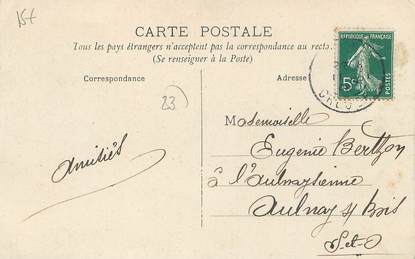 15+
CARTE POSTALE
Tous les pays étrangers n'acceptent pas la correspondance au recto
(Se renseigner à la Poste)
Correspondance
Adresse
RÉPUBLIQUE FRANÇAISE
5c
POSTES
23
Mademoiselle
amitiés
Eugénie Berthon
à l'aulnaysienne
Aulnay s/ Bois
S-et-O